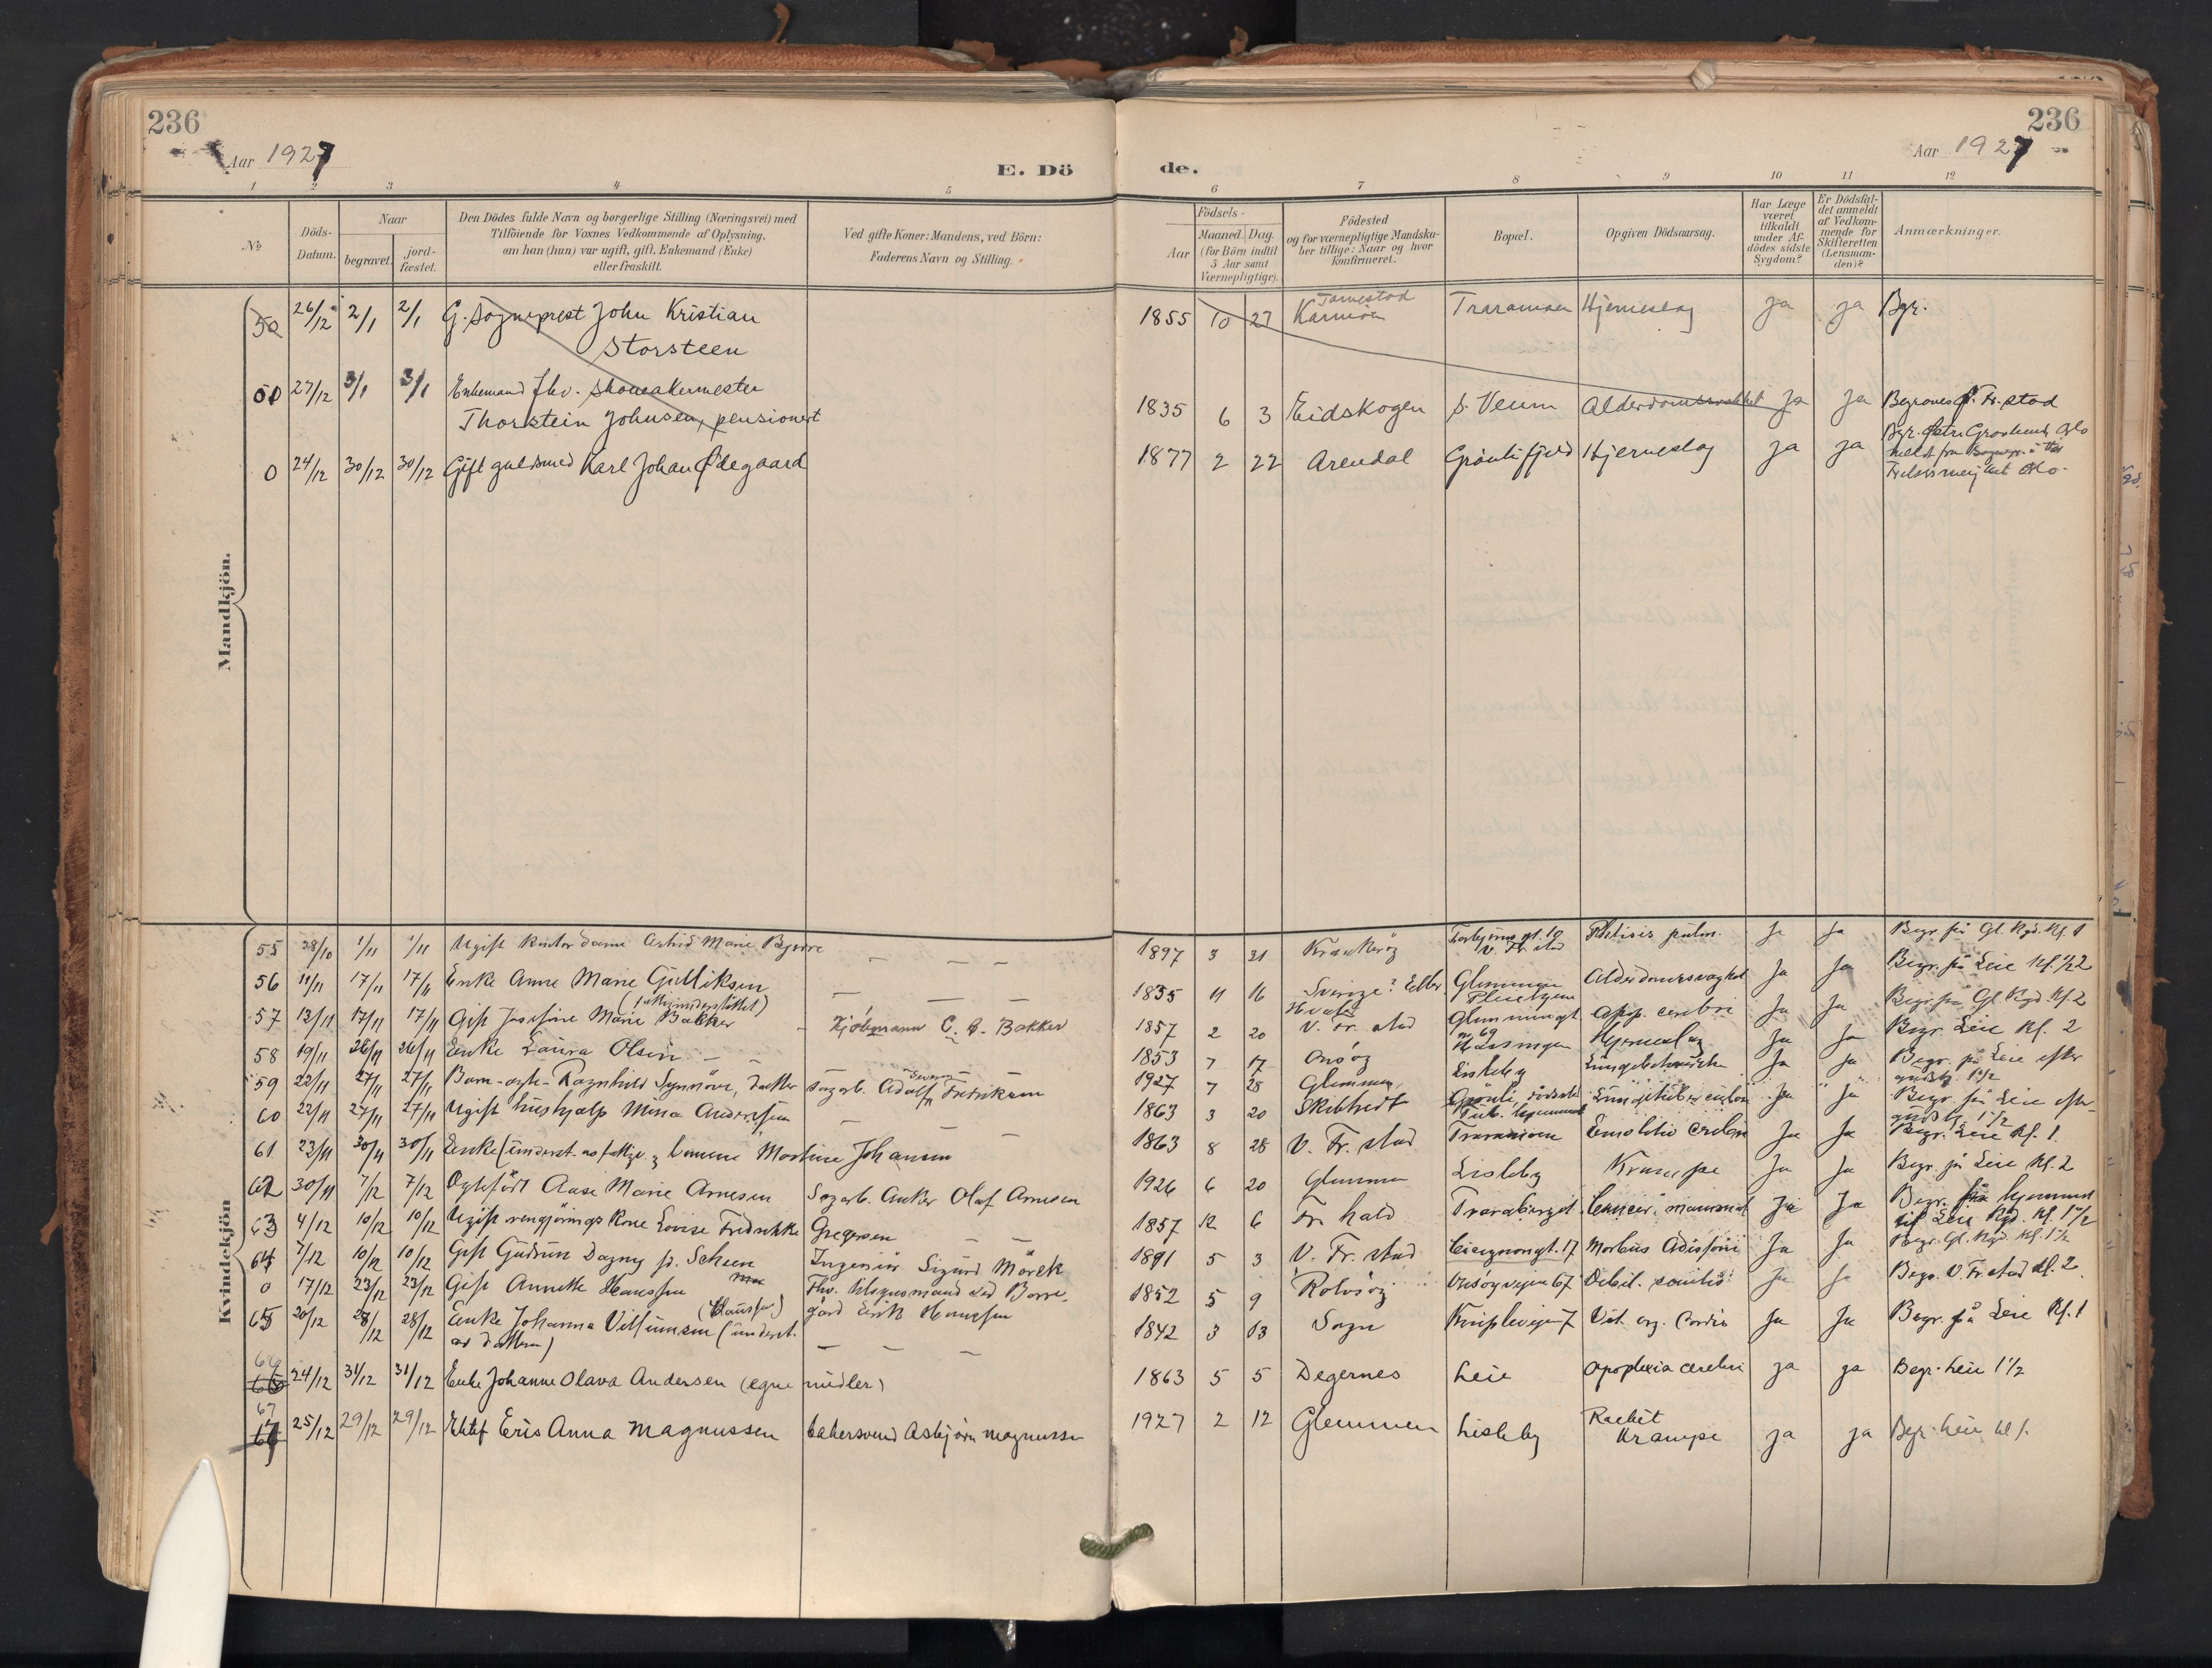 236
Aar 1927
E. Dö
1 2 3 4 5
No
Döds-
Datum.
Naar
begravet.
jord-
fæstet.
Den Dödes fulde Navn og borgerlige Stilling (Næringsvei) med
Tilföiende for Voxnes Vedkommende af Oplysning,
om han (hun) var ugift, gift, Enkemand (Enke)
eller fraskilt.
Ved gifte Koner: Mandens, ved Börn:
Faderens Navn og Stilling.
Mandkjön.
50 26/12 2/1 2/1 G. Sogneprest John Kristian
Storsteen
50 27/12 3/1 3/1 Enkemand fhv. skomakermester
Thorstein Johnsen, pensionert
0 24/12 30/12 30/12 Gift guldsmed Karl Johan Ødegaard
Kvindekjön
55 28/10 1/11 1/11 Ugift kontordame Astrid Marie Bjerre — — —
56 11/11 17/11 17/11 Enke Anne Marie Gulliksen — — —
(fattigunderstöttet)
57 13/11 17/11 17/11 Gift Josefine Marie Bakker Kjöbmann C. B. Bakker
58 19/11 26/11 26/11 Enke Laura Olsen — —
59 22/11 27/11 27/11 Barn-egte-Ragnhild Synnöve, datter Sagarb. Adolf Severin Fredriksen
60 22/11 27/11 27/11 Ugift hushjælp Mina Andersen — — —
61 23/11 30/11 30/11 Enke (underst. av fattigv. Martine Johansen
62 30/11 7/12 7/12 Egtefödt Aase Marie Arnesen Sagarb. Anker Olaf Arnesen
63 4/12 10/12 10/12 Ugift rengjöringskone Lovise Fredrikke Gregersen — —
64 7/12 10/12 10/12 Gift Gudrun Dagny f. Scheen Ingeniör Sigurd Mörck
0 17/12 23/12 23/12 Gift Annette Hanssen Fhv. Borre-
gård Erik Hanssen
65 20/12 28/12 28/12 Enke Johanna Villumsen (underst.
av datteren) — — —
66 24/12 31/12 31/12 Enke Johanne Olava Andersen (egne midler)
67 25/12 29/12 29/12 Ektef Eris Anna Magnussen bakersvend Asbjørn Magnussen
236
Aar 1927
de.
6 7 8 9 10 11 12
Födsels-
Aar
Maaned. Dag.
(for Börn indtil
5 Aar samt
Værnepligtige).
Födested
og for værnepligtige Mandska-
ber tillige: Naar og hvor
konfirmeret.
Bopæl.
Opgiven Dödsaarsag.
Har Læge
været
tilkaldt
under Af-
dödes sidste
Sygdom?
Er Dödsfal-
det anmeldt
af Vedkom-
mende for
Skifteretten
(Lensman-
den)?
Anmærkninger.
1855 10 27 Karmöen Traramoen Hjerneslag ja ja Bgr.
1835 6 3 Eidskogen S. Veum Alderdomssvakhet Ja Ja Begraves Fr. stad
1877 2 22 Arendal Grönlifjeld Hjerneslag ja ja Bgr. Østre Gravlund, Oslo
1897 3 31 Kraakeröy V. Fr. stad Phtisis pulm. Ja Ja Begr. på Gl. Kgd. Kl. 1
1835 11 16 Sverige? Eller Glemmen Pleiehjem Alderdomssvaghet Ja Ja Begr. på Leie Kl. 1 1/2
1857 2 20 V. Fr. stad Glemmengt. 69 Apop. cerebri Ja Ja Begr. på Gl. Kgd. Kl. 2
1853 7 17 Onsöy Hassingen Hjerneslag Ja Ja Begr. Leie Kl. 2
1927 7 28 Glemmen Lisleby Lungebetændelse Ja Ja Begr. på Leie efter
gudstj. 1 1/2
1863 3 20 Skibtvedt Grönli, Ja Ja Begr. på Leie efter
gudstj. 1 1/2
1863 8 28 V. Fr. stad Traramoen Emolitio cerebri Ja Ja Begr. Leie Kl. 1.
1926 6 20 Glemmen Lisleby Krampe Ja Ja Begr. på Leie Kl. 2
1857 12 6 Fr. hald Traraberget Cancer mammæ Ja Ja Begr. fra hjemmet
til Leie Kgd. Kl. 1 1/2
1891 5 3 V. Fr. stad Bjergnongt. 17 Morbus Adisonii Ja Ja Begr. Gl. Kgd. Kl. 1 1/2
1852 5 9 Rolvsöy Onsöyveien 67 Debil. senilis Ja Ja Begr. V. Fr stad Kl. 2
1842 3 13 Sogn Knipleveien 7 Vit. org. Cordis Ja Ja Begr. på Leie Kl. 1
1863 5 5 Degernes Leie Apoplexia cerebri ja ja Begr. Leie 1 1/2
1927 2 12 Glemmen Lisleby Rachit
Krampe ja ja Begr. Leie kl 1.